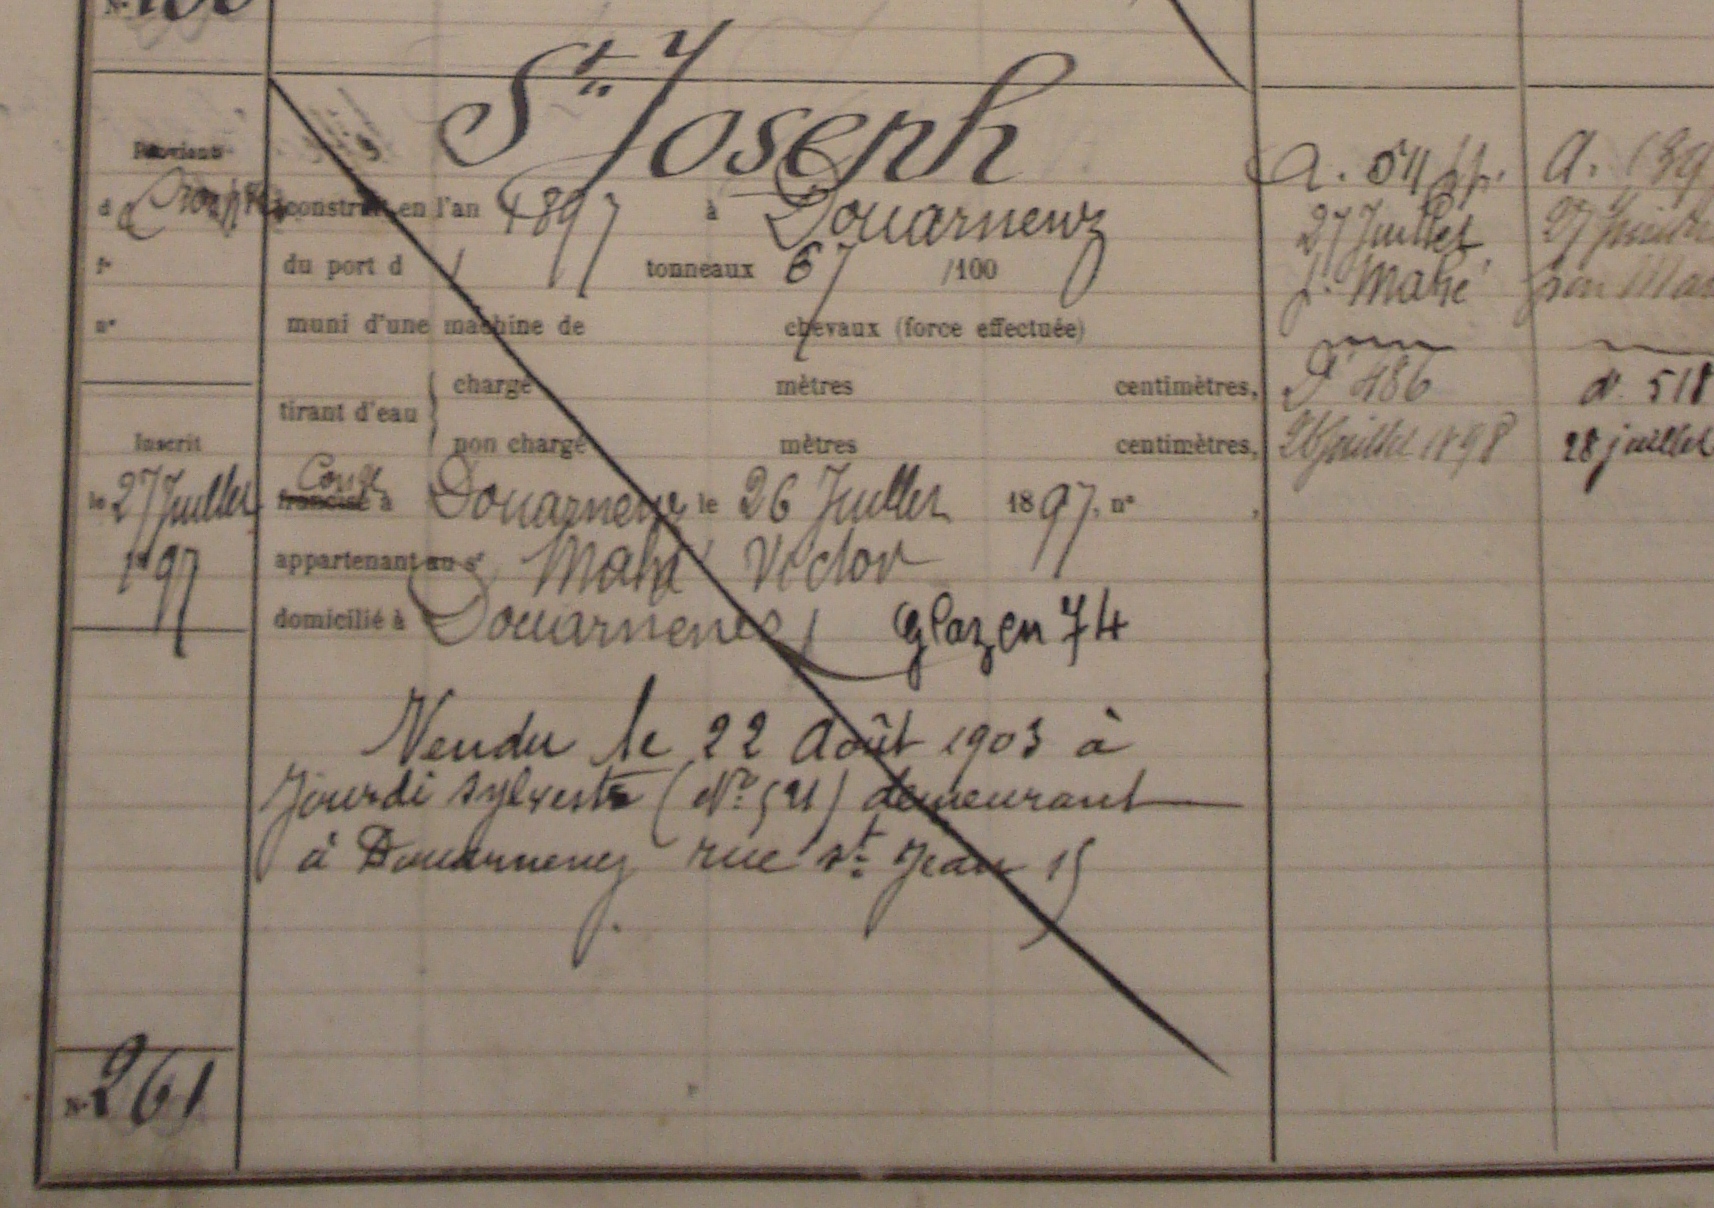 St Joseph
construit en l'an 1897 à Douarnenez
du port d 1 tonneaux 67 /100
muni d'une machine de chevaux (force effectuée)
tirant d'eau
chargé mètres centimètres,
non chargé mètres centimètres,
Inscrit
le 27 Juillet
1897
Congé
francisé à Douarnenez le 26 Juillet 1897, n°
appartenant au sr Mahé Victor
domicilié à Douarnenez Glazen 74
Vendu le 22 Août 1903 à
Jourdi Sylvestre demeurant
à Douarnenez rue St Jean 15
N° 261
27 Juillet
Mahé
486
Juillet 1898
d° 518
28 juillet